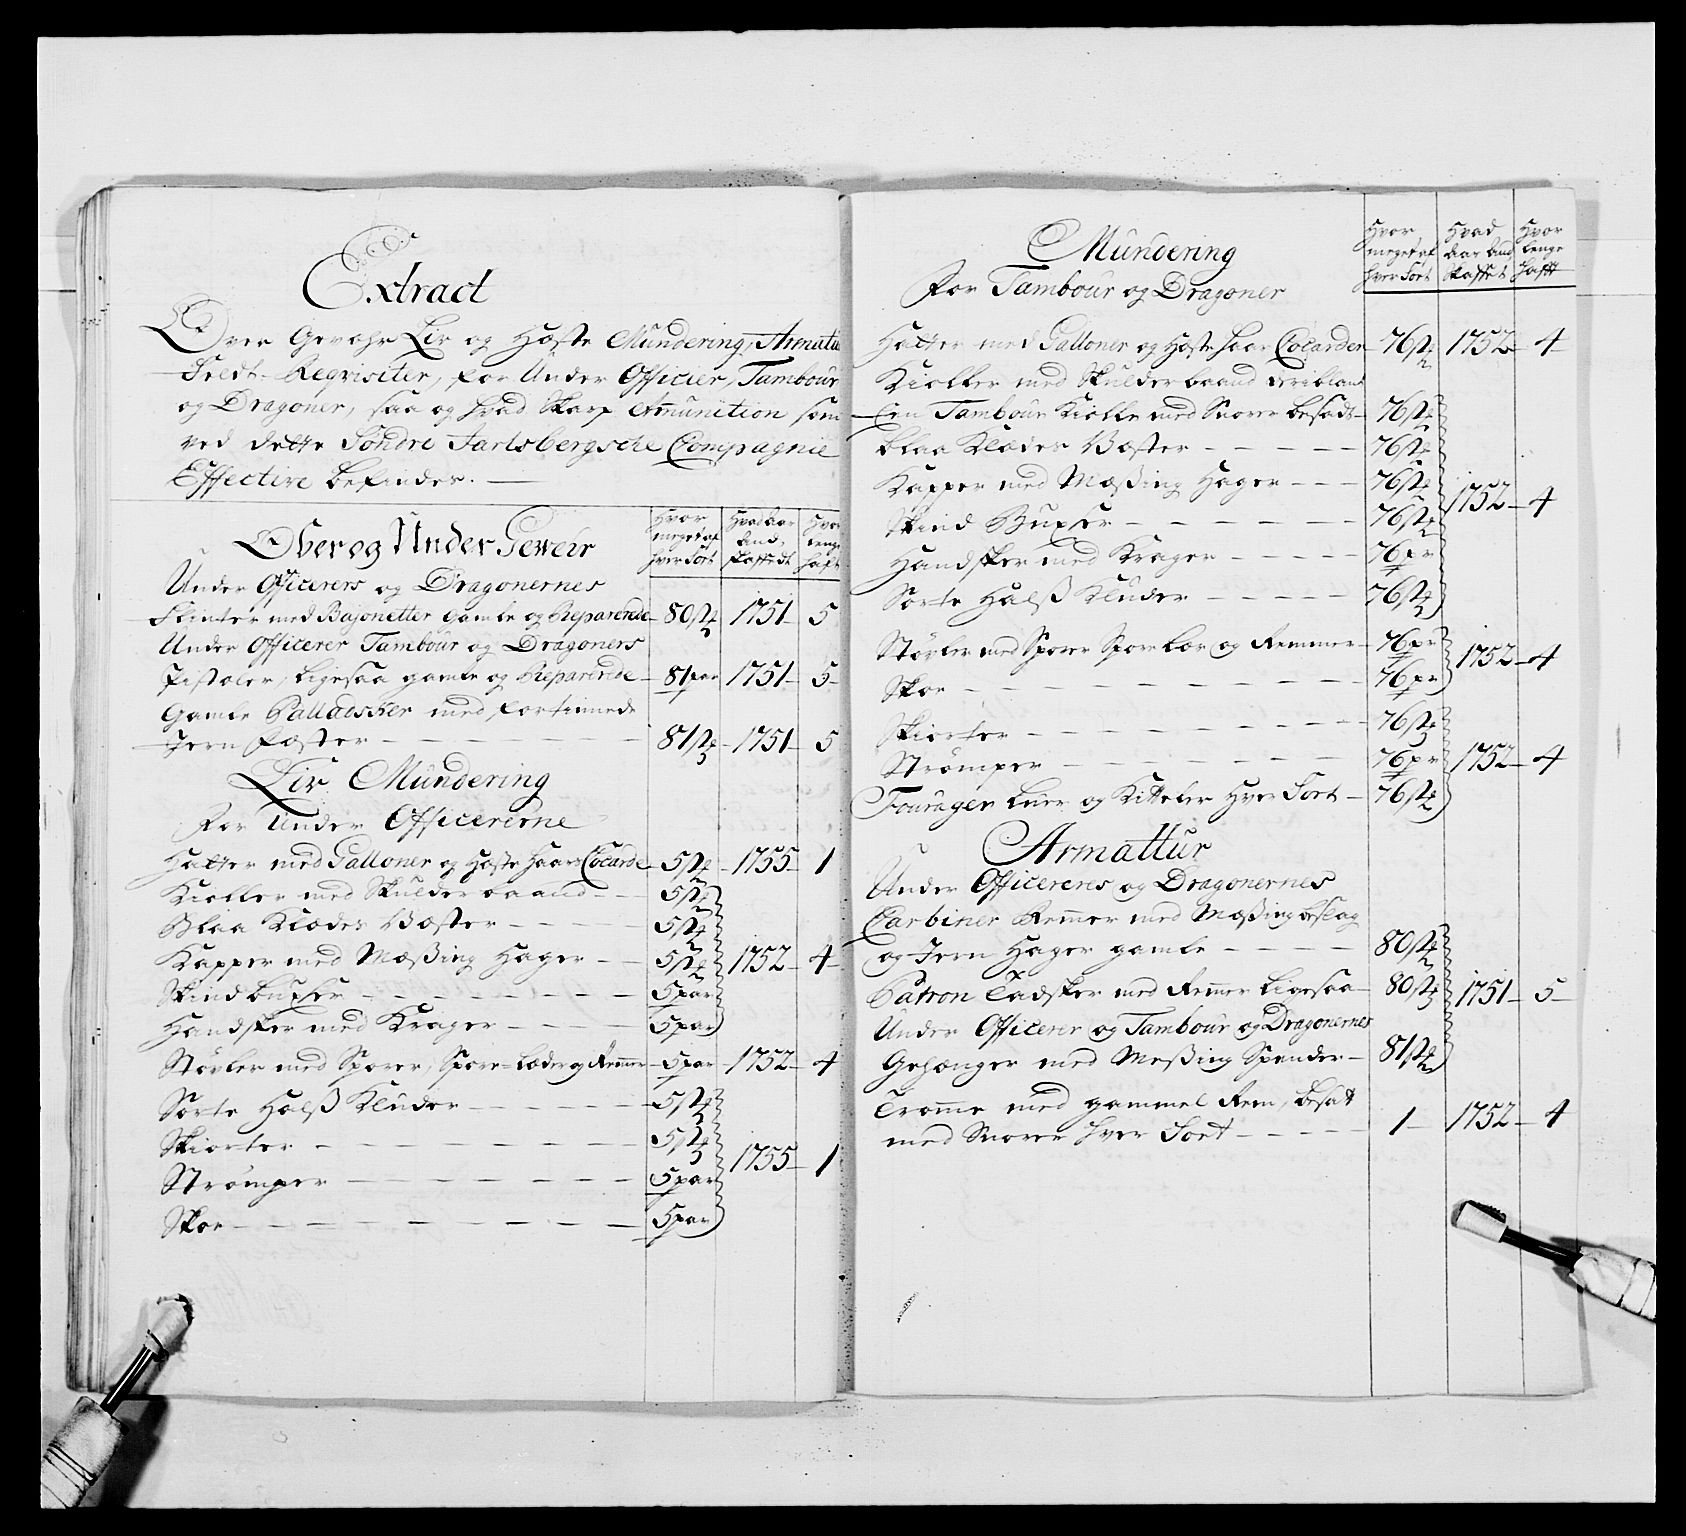 Extract
Over Gevæhr Liv og Hæste Mundering, Armatu
Feldt-Reqvisiter, for Under Officier, Tambour
og Dragoner, saa og hvad Skarp Amunition som
ved dette Søndre Jarlsbergsche Compagnie
Effective befindes.
Over og Under Geweir
Hvor meget af hver Sort
Hvad aar bud. skaffedt
Hvor lenge haft
Under Officerers og Dragonernes
Flinter med Bajonetter gamle og Reparerede 80 st 1751 5
Under Officerer Tambour og Dragoners
Pistoler, ligesaa gamle og Reparerede 81 par 1751 5
Gamle Palladsker med fortinnede
Jern Fæster 81 st 1751 5
Liv Mundering
For Under Officererne
Hatter med Galloner og Hæste Haars Cocarde 5 st 1755 1
Kioller med Skulderbaand 5 st
Blaa Klædes Væster 5 st
Kapper med Mæßing Hager 5 st 1752 4
Skindbuxer 5 par
Handsker med Krager 5 par
Støvler med Sporer, Spore-læder og Remer 5 par 1752 4
Sorte Halß Kluder 5 st
Skiorter 5 st
1755 1
Strømper 5 par
Skoe 5 par
Mundering
For Tambour og Dragoner
Hvor meget af hver Sort
Hvad aar bud skaffet
Hvor lenge hafft
Hatter med Galloner og Hæste haar Cocarder 76 st 1752 4
Kioller med Skulderbaand deriblant
Een Tambour Kiolle med Snorer besadt 76 st
blaa Klædes Væster 76 st
Kapper med Mæßing Hager 76 st
1752 4
Skind Buxer 76 st
Handsker med Krager 76 pr
Sorte Halß Kluder 76 st
Støvler med Sporer Sporelær og Remmer 76 pr
1752 4
Skoe 76 pr
Skiorter 76 st
Strømper 76 pr 1752 4
Fourager Liner og Kitteler Hver Sort 76 st
Armattur
Under Officereres og Dragonernes
Carbiner Remer med Mæßing beslag
og Jern Hager gamle 80 st
Patron Tadsker med Remer ligesaa 80 st 1751 5
Under Officerer og Tambour og Dragonernes
Gehænger med Meßing Spender 81 st
Tromme med gammel Rem, besat
med Snorer hver Sort 1 1752 4